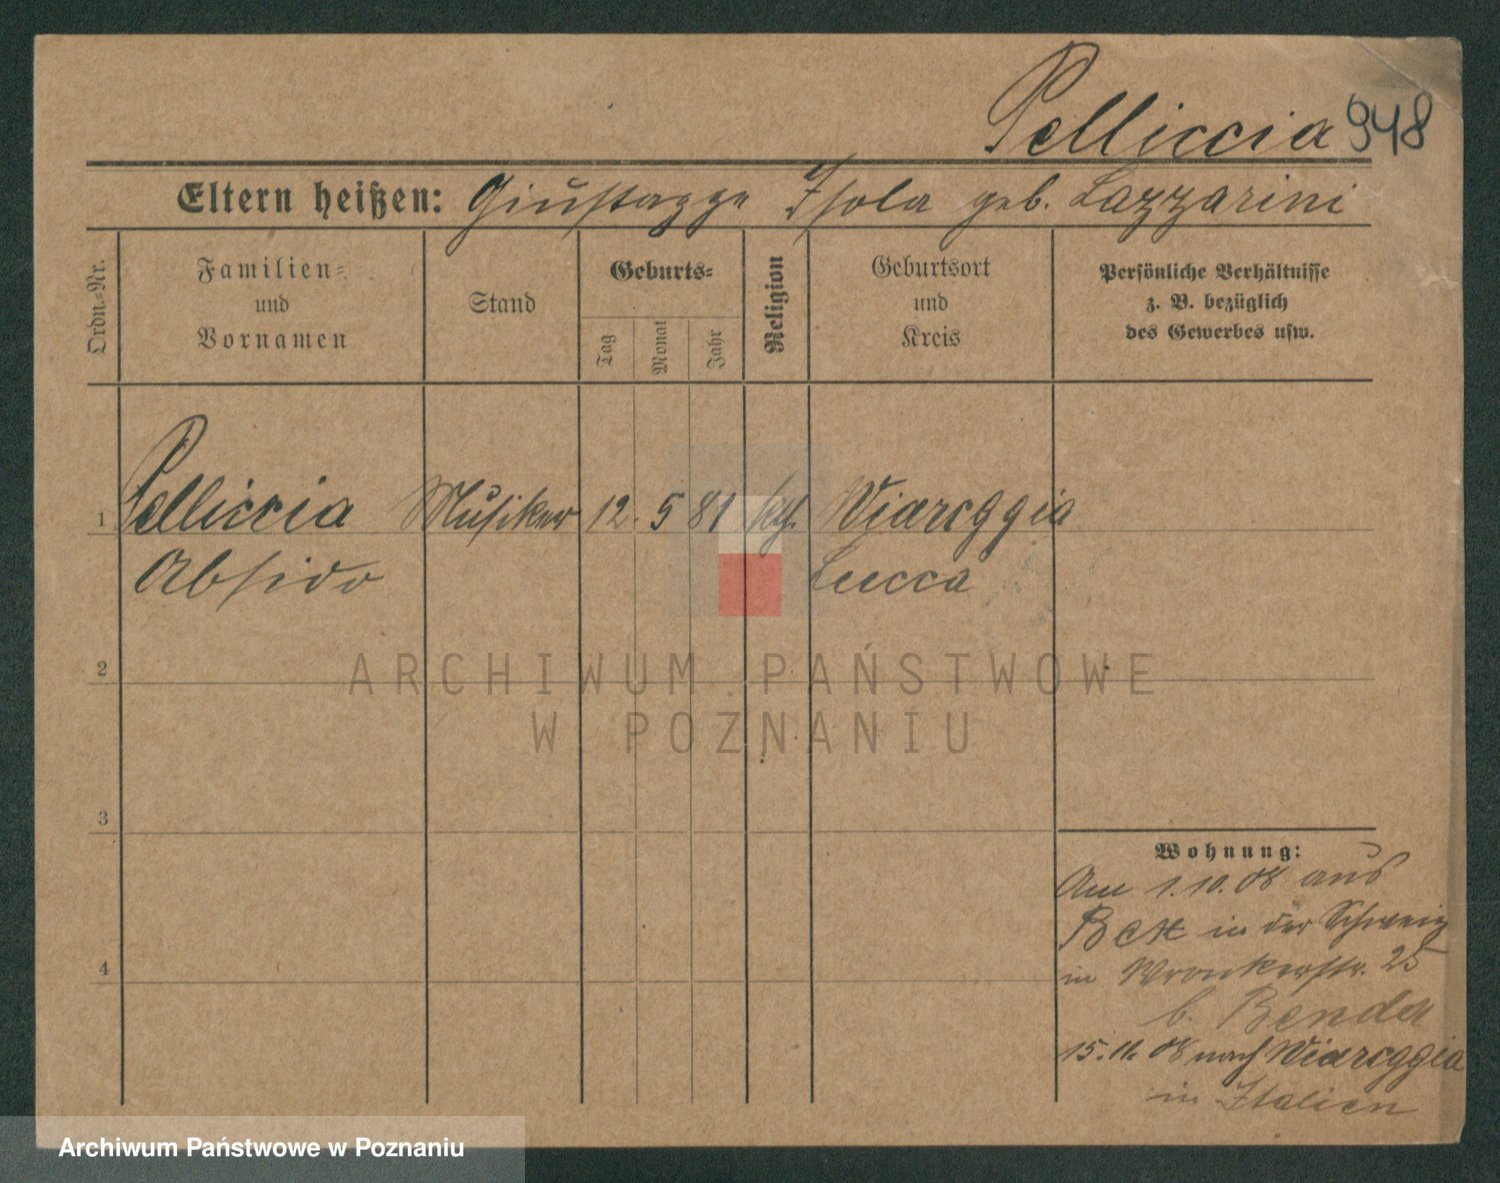 Pelliccia 948
Eltern heißen: Giustagge Isola geb. Lazzarini
Ordn.-Nr.
Familien-
und
Vornamen
Stand
Geburts-
Tag
Monat
Jahr
Religion
Geburtsort
und
Kreis
Persönliche Verhältnisse
z. B. bezüglich
des Gewerbes usw.
1 Pelliccia Musiker 12. 5 81 kth. Viareggia
Absido Lucca
2
3
4
Wohnung:
Am 1.10.08 aus
Bex in der Schweiz
in Wronkerstr. 25
b. Benda
15.11.08 nach Viareggia
in Italien
ARCHIWUM PAŃSTWOWE
W POZNANIU
Archiwum Państwowe w Poznaniu